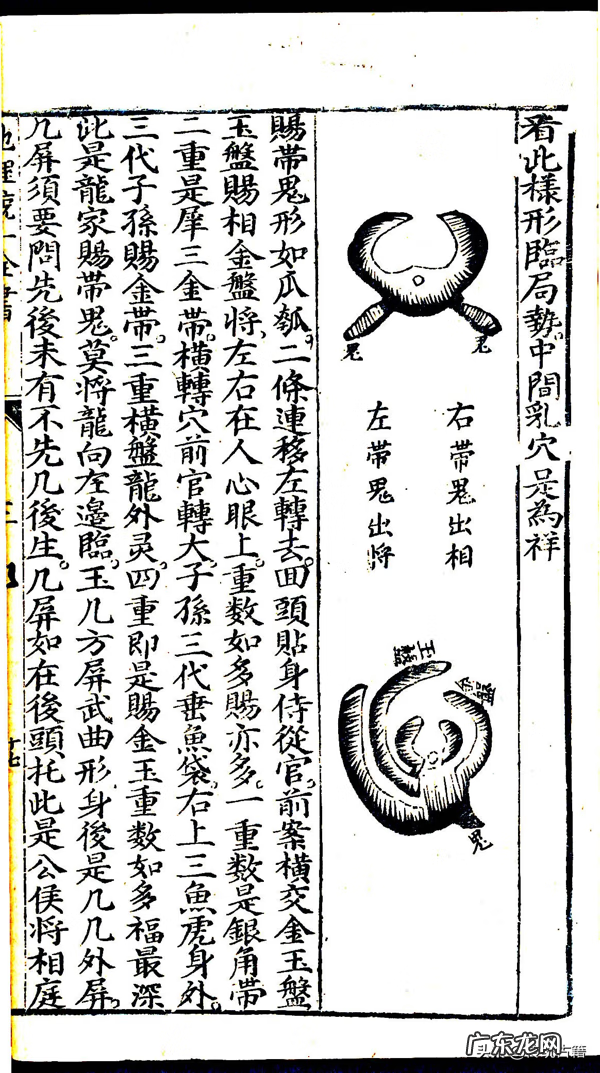 看此樣形臨局勢中間乳穴是為祥
鬼
鬼
右帶鬼出相
左帶鬼出将
玉盤
金盤
鬼
賜帶鬼形如瓜瓠二條連移左轉去回頭貼身侍從官前案橫交金玉盤
玉盤賜相金盤將左右在人心眼上重数如多賜亦多一重数是銀角帶
二重是犀三金帶橫轉穴前官轉大子孫三代垂魚袋右上三魚虎身外
三代子孫賜金帶三重橫盤龍外灵四重即是賜金玉重数如多福最深
此是龍家賜帶鬼莫将龍向左邊臨玉几方屏武曲形身後是几几外屏
几屏須要問先後未有不先几後生几屏如在後頭托此是公侯将相庭
十七
广东龙网